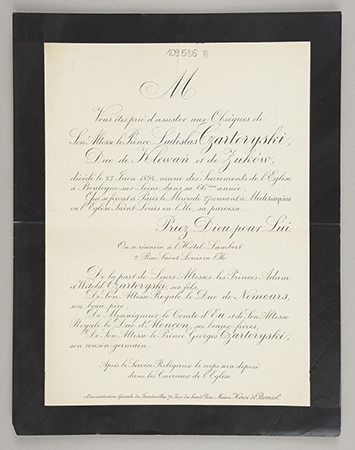 109536 III
M
Vous êtes prié d'assister aux Obsèques de
Son Altesse le Prince Ladislas Czartoryski,
Duc de Klewań et de Żuków,
décédé le 23 Juin 1894, muni des Sacrements de l'Eglise
à Boulogne-sur-Seine, dans sa 66ème année;
Qui se feront à Paris le Mercredi 27 courant à Midi très précis
en l'Eglise Saint Louis en l'Ile, sa paroisse.
Priez Dieu pour Lui
On se réunira à l'Hôtel Lambert
2, Rue Saint Louis en l'Ile
De la part de Leurs Altesses, les Princes Adam
et Witold Czartoryski, ses fils;
De Son Altesse Royale le Duc de Nemours,
son beau-père;
De Monseigneur le Comte d'Eu et de Son Altesse
Royale le Duc d'Alençon, ses beaux-frères,
De Son Altesse le Prince Georges Czartoryski,
son cousin-germain.
Après le Service Religieux le corps sera déposé
dans les Caveaux de l'Eglise.
Administration spéciale de Funérailles, 70, Rue des Saints Pères. Maison Henri de Borniol